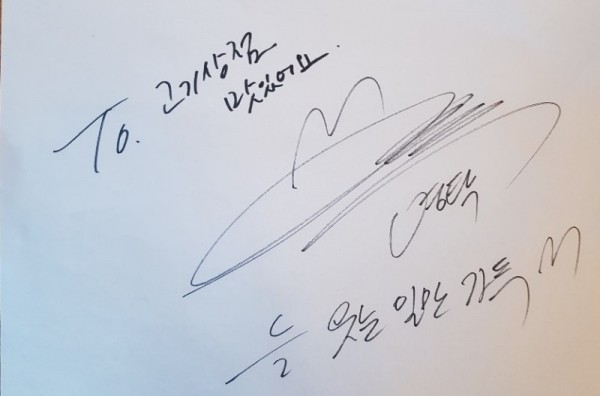 To. 고기상점
맛있어요.
영탁
늘 웃는 일만 가득